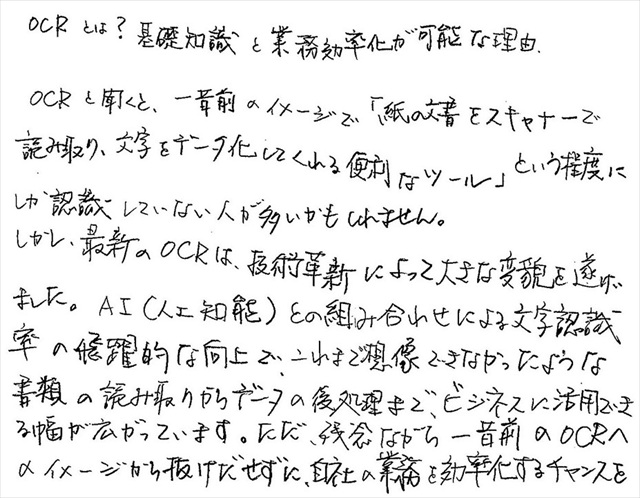 OCRとは？基礎知識と業務効率化が可能な理由.
OCRと聞くと、一昔前のイメージで「紙の文書をスキャナーで
読み取り、文字をデータ化してくれる便利なツール」という程度に
しか認識していない人が多いかもしれません。
しかし、最新のOCRは、技術革新によって大きな変貌を遂げ
ました。AI（人工知能）との組み合わせによる文字認識
率の飛躍的な向上で、これまで想像できなかったような
書類の読み取りからデータの後処理まで、ビジネスに活用でき
る幅が広がっています。ただ、残念ながら一昔前のOCRへ
のイメージから抜けだせずに、自社の業務を効率化するチャンスを